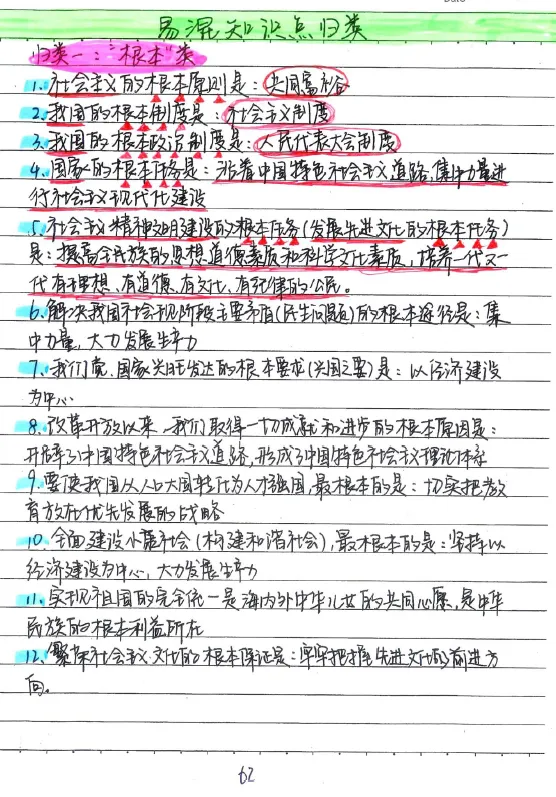 易混知识点归类
归类一："根本"类
1、社会主义的根本原则是：共同富裕
2、我国的根本制度是：社会主义制度
3、我国的根本政治制度是：人民代表大会制度
4、国家的根本任务是：沿着中国特色社会主义道路，集中力量进
行社会主义现代化建设
5、社会主义精神文明建设的根本任务(发展先进文化的根本任务)
是：提高全民族的思想道德素质和科学文化素质，培养一代又一
代有理想、有道德、有文化、有纪律的公民。
6、解决我国社会现阶段主要矛盾(民生问题)的根本途径是：集
中力量，大力发展生产力
7、我们党、国家兴旺发达的根本要求(兴国之要)是：以经济建设
为中心
8、改革开放以来，我们取得一切成就和进步的根本原因是：
开辟了中国特色社会主义道路，形成了中国特色社会主义理论体系
9、要使我国从人口大国转化为人才强国，最根本的是：切实把教
育放在优先发展的战略
10、全面建设小康社会(构建和谐社会)，最根本的是：坚持以
经济建设为中心，大力发展生产力
11、实现祖国的完全统一是海内外中华儿女的共同心愿，是中华
民族的根本利益所在
12、繁荣社会主义文化的根本保证是：牢牢把握先进文化的前进方
向。
62